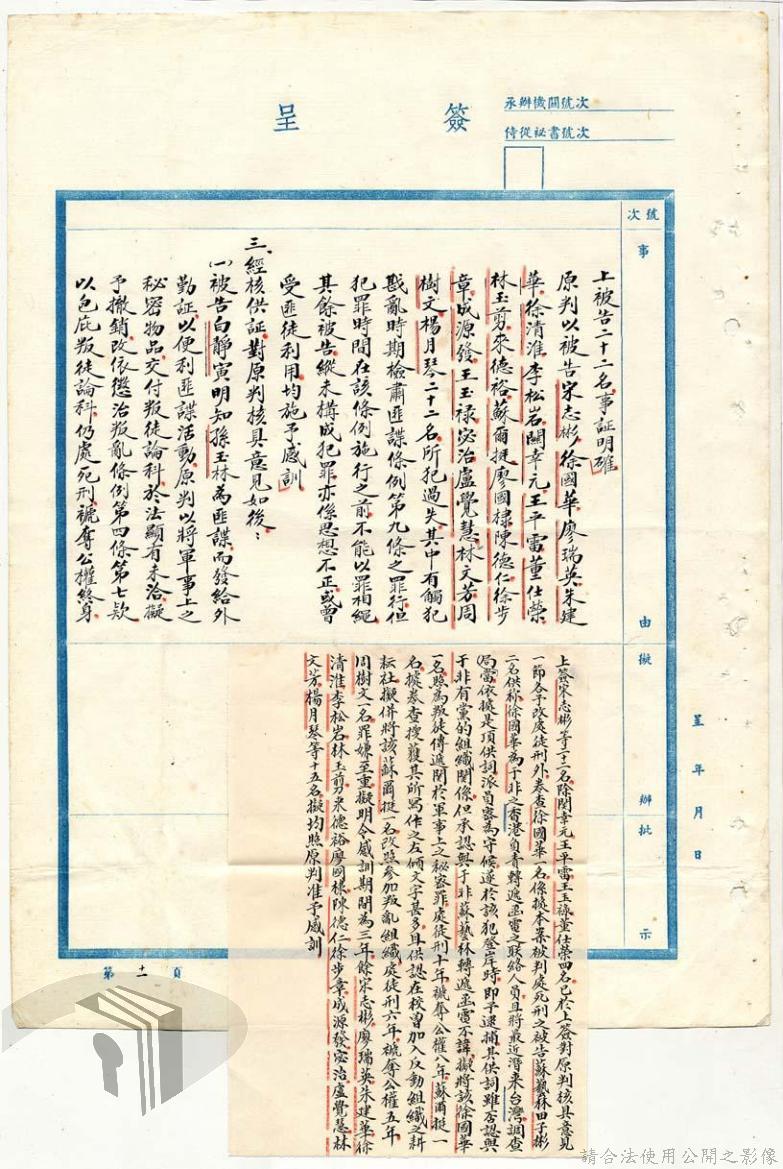 簽呈
承辦機關號次
侍從祕書號次
號次
事由
擬辦
批示
呈 年 月 日
上被告二十二名事証明確
原判以被告宋志彬徐國華廖瑞英朱建
華徐清淮李松岩關幸元王平雷董仕榮
林玉剪來德裕蘇爾挺廖國棣陳德仁徐步
章成源發王玉祿宓治盧覺慧林文芳周
樹文楊月琴二十二名所犯過失其中有觸犯
戡亂時期檢肅匪諜條例第九條之罪行但
犯罪時間在該條例施行之前不能以罪相繩
其餘被告縱未構成犯罪亦係思想不正或曾
受匪徒利用均施予感訓
三、經核供証對原判核具意見如後：
㈠被告白靜寅明知孫玉林為匪諜而發給外
勤証以便利匪諜活動原判以將軍事上之
秘密物品交付叛徒論科於法顯有未洽擬
予撤銷改依懲治叛亂條例第四條第七款
以包庇叛徒論科仍處死刑褫奪公權終身
上簽宋志彬等二十二名除關幸元王平雷王玉祿董仕榮四名已於上簽對原判核具意見
一節各予改處徒刑外卷查徐國華一名係據本案被判處死刑之被告蘇藝林田子彬
二名供称徐國華為于非之香港負責轉遞函電之联絡人員且將最近潛來台灣調查
局當依據是項供詞派員密為守候遂於該犯登岸時即予逮捕其供詞雖否認與
于非有黨的組織関係但承認與于非蘇藝林轉遞函電不諱擬將該徐國華
一名照為叛徒傳遞関於軍事上之秘密罪處徒刑十年褫奪公權八年蘇爾挺一
名據卷查搜獲其所寫作之左傾文字甚多且供認在校曾加入反動組織之耕
耘社擬併將該蘇爾挺一名改照參加叛亂組織處徒刑六年褫奪公權五年
周樹文一名罪嫌至重擬明令感訓期間為三年餘宋志彬廖瑞英朱建華徐
清淮李松岩林玉剪來德裕廖國棣陳德仁徐步章成源發宓治盧覺慧林
文芳楊月琴等十五名擬均照原判准予感訓
第十二頁
請合法使用公開之影像